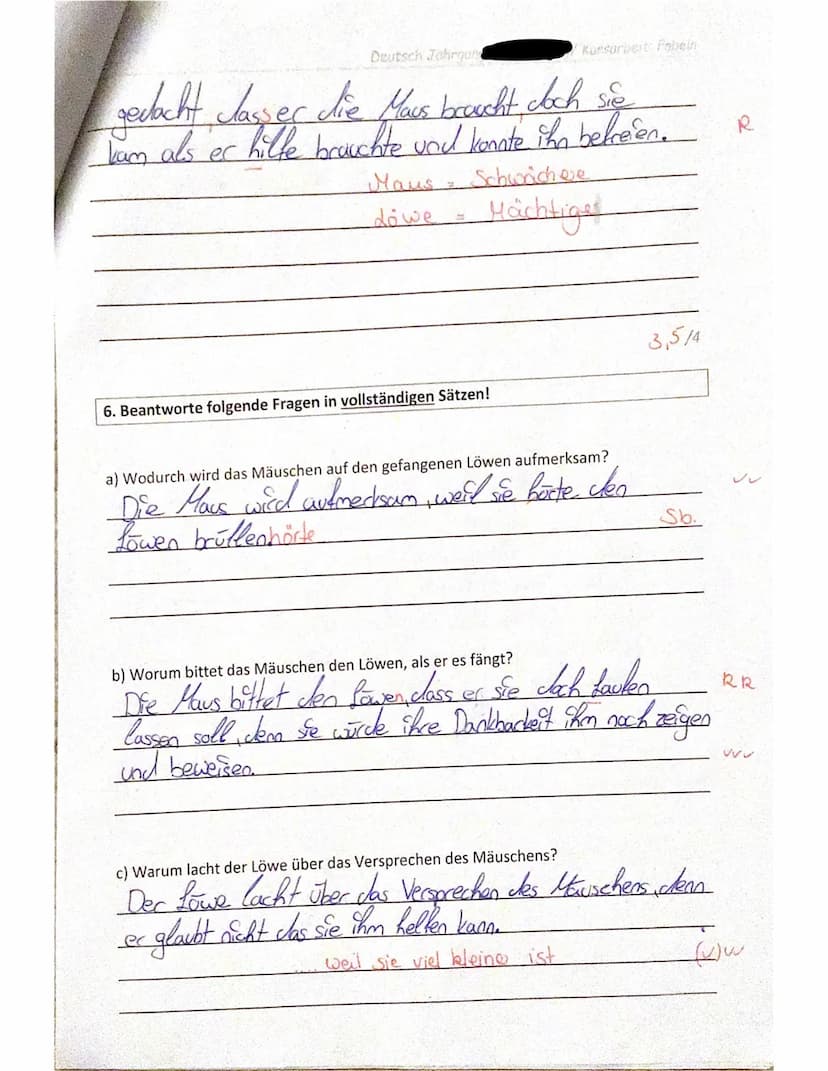 Deutsch Jahrgan Kursarbeit: Fabeln
gedacht, dass er die Maus braucht, doch sie
kam als er hilfe brauchte und konnte ihn befreien. R
Maus = Schwächere
Löwe = Mächtiger
3,5/4
6. Beantworte folgende Fragen in vollständigen Sätzen!
a) Wodurch wird das Mäuschen auf den gefangenen Löwen aufmerksam?
Die Maus wird aufmerksam, weil sie hörte den
Löwen brüllen hörte Sb.
b) Worum bittet das Mäuschen den Löwen, als er es fängt?
Die Maus bittet den Löwen, dass er sie doch laufen RR
lassen soll, denn sie würde ihre Dankbarkeit ihm noch zeigen
und beweisen.
c) Warum lacht der Löwe über das Versprechen des Mäuschens?
Der Löwe lacht über das Versprechen des Mäuschens, denn
er glaubt nicht das sie ihm helfen kann.
.... weil sie viel kleiner ist